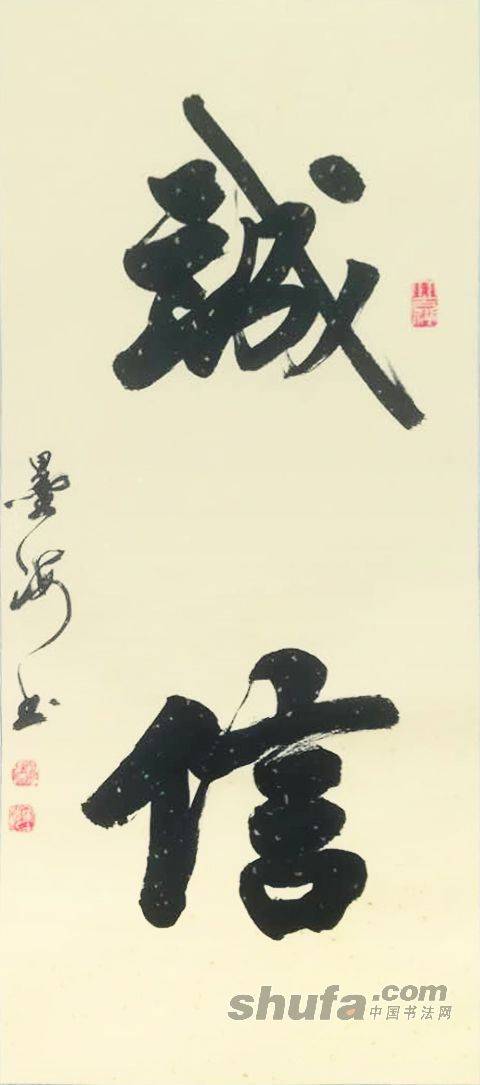 誠
信
墨海书
shufa.com
中国书法网